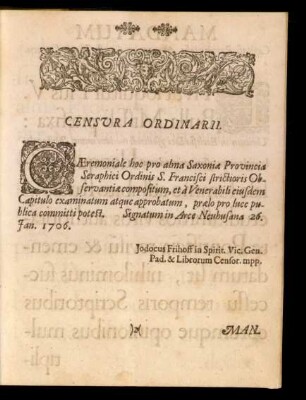 CENSURA ORDINARII.
CÆremoniale hoc pro alma Saxoniæ Provincia
Seraphici Ordinis S. Francisci strictioris Ob-
servantiæ compositum, et à Venerabili ejusdem
Capitulo examinatum atque approbatum, prælo pro luce pu-
blica committi potest. Signatum in Arce Neuhusana 26.
Jan. 1706.
Jodocus Frihoff in Spirit. Vic. Gen.
Pad. & Librorum Censor. mpp.
MAN.